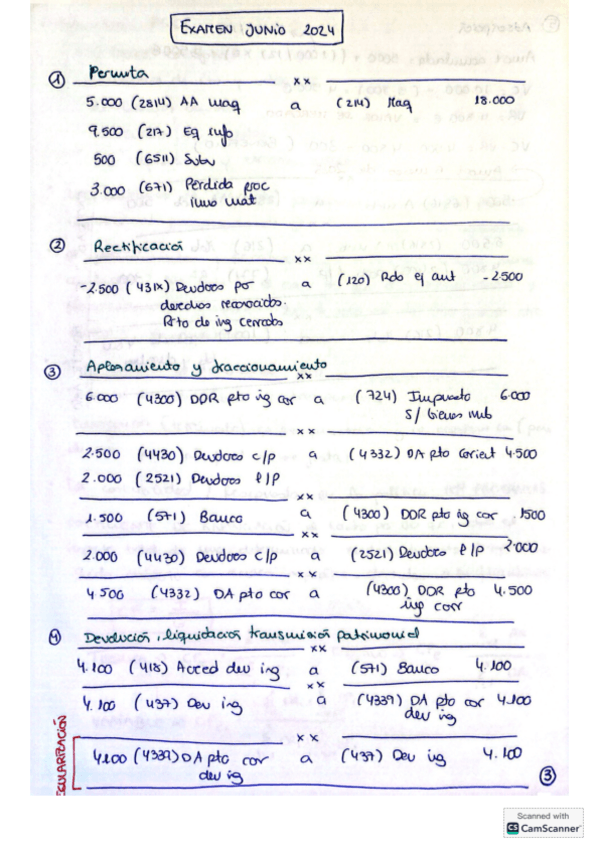 EXAMEN JUNIO 2024
① Permuta
xx
5.000 (2814) AA maq a (214) Maq 18.000
9.500 (217) Eq info
500 (6511) Subv
3.000 (671) Pérdida proc inmo mat
② Rectificación
xx
-2.500 (431X) Deudores por a (120) Rdo ej ant -2500
derechos reconocidos.
Pto de ing cerrados
③ Aplazamiento y fraccionamiento
xx
6.000 (4300) DDR pto ig cor a (724) Impuesto 6.000
s/ bienes inmb
xx
2.500 (4430) Deudores c/p a (4332) DA pto corient 4.500
2.000 (2521) Deudores l/p
xx
1.500 (571) Banco a (4300) DDR pto ig cor 1500
xx
2.000 (4430) Deudores c/p a (2521) Deudores l/p 2.000
xx
4.500 (4332) DA pto cor a (4300) DDR pto 4.500
ing corr
④ Devolución, liquidación transmisión patrimonial
xx
4.100 (418) Acreed dev ing a (571) Banco 4.100
xx
4.100 (437) Dev ing a (4339) DA pto cor 4.100
dev ing
xx
4.100 (4339) DA pto cor a (437) Dev ing 4.100
dev ig
EGULARIZACIÓN
③
Scanned with
CS CamScanner